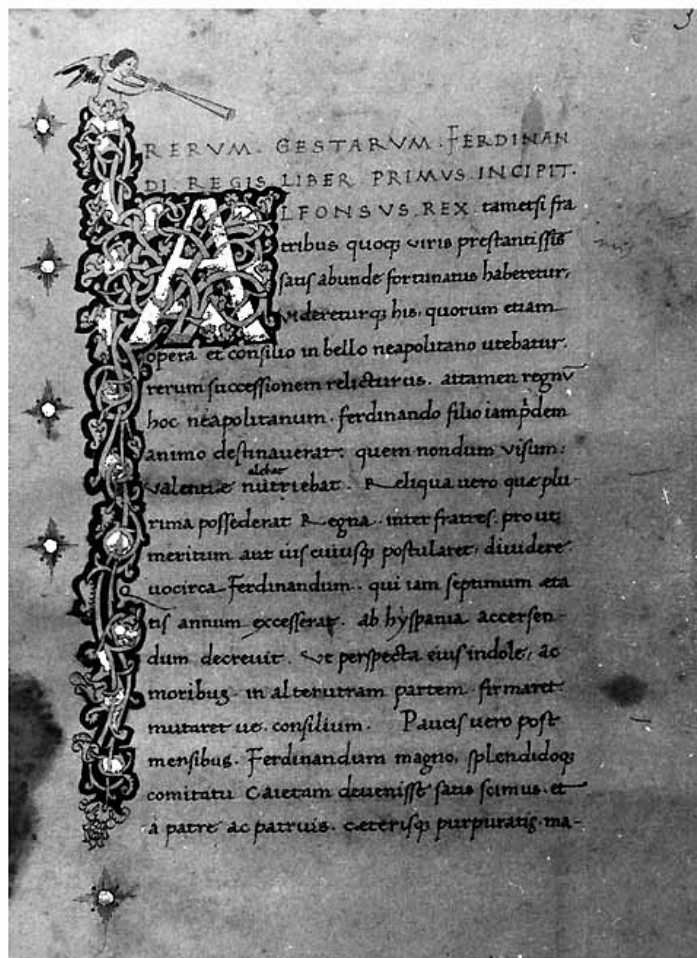 3
RERVM · GESTARVM · FERDINAN
DI REGIS LIBER PRIMVS INCIPIT ·
ALFONSVS REX · tametsi fra
tribus quoq; viris prestantissis
satis abunde fortunatus haberetur,
videreturq; his, quorum etiam
opera et consilio in bello neapolitano utebatur ·
rerum successionem relicturus · attamen regnū
hoc neapolitanum · ferdinando filio iam pdem
animo destinauerat: quem nondum visum:
alebat
valentiæ nutriebat · Reliqua uero quæ plu-
rima possederat Regna · inter fratres · prout
meritum aut ius cuiusq; postularet, diuidere
uocirca Ferdinandum · qui iam septimum æta
tis annum excesserat · ab hyspania accersen-
dum decreuit · Vt perspecta eius indole, ac
moribus · in alterutram partem firmaret
mutaret ue · consilium · Paucis uero post
mensibus · Ferdinandum magno, splendidoq;
comitatu Caietam deuenisse satis scimus · et
a patre ac patruis · cæterisq; purpuratis · ma-